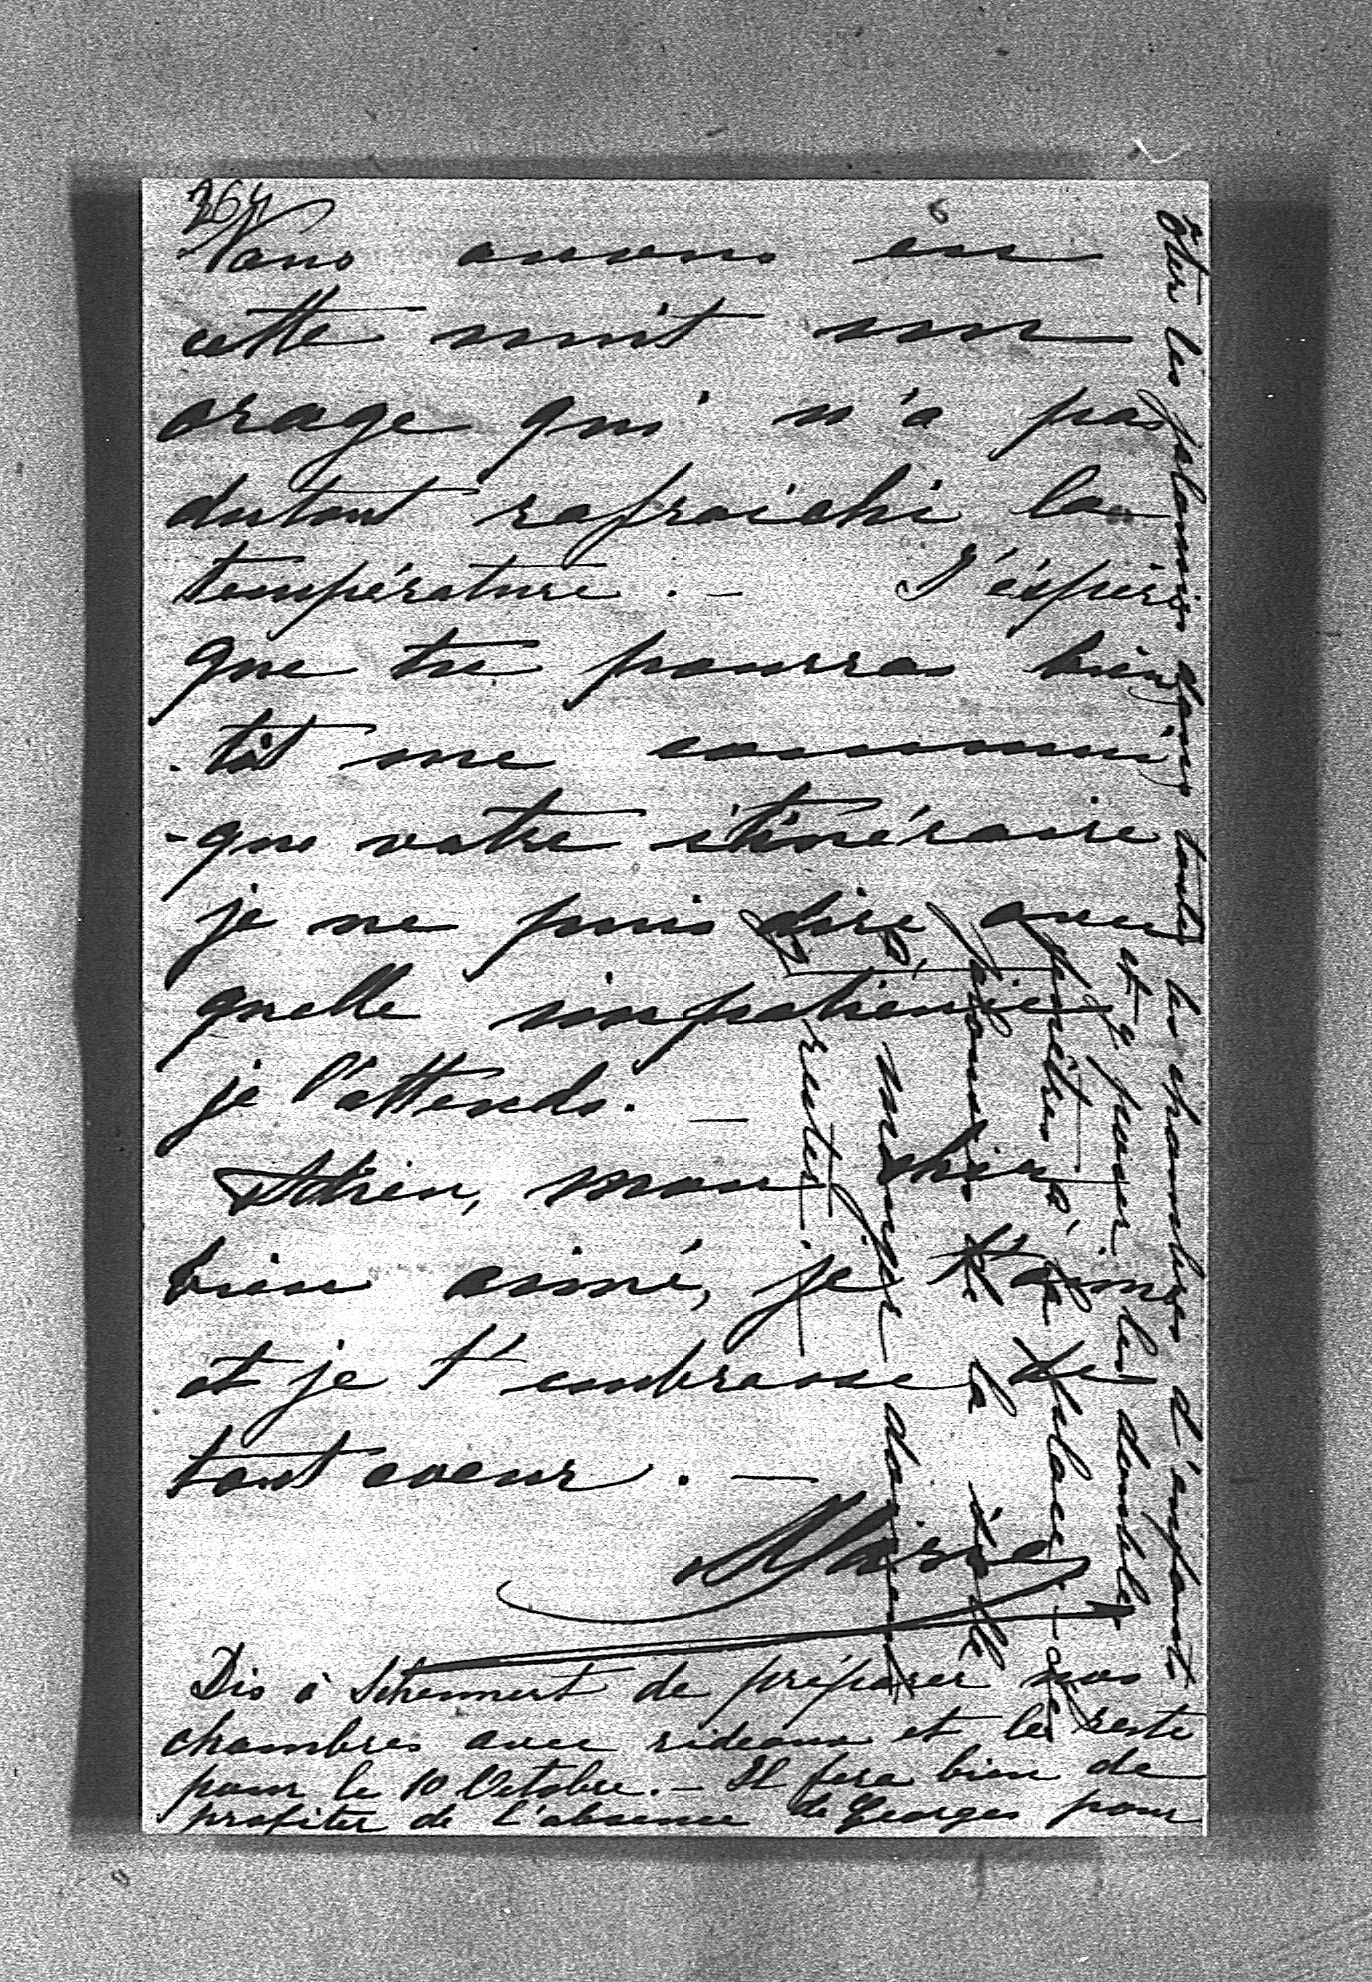 264
6
Nous avons eu
cette nuit un
orage qui n'a pas
dutout rafraichi la
température. — J'éspère
que tu pourras bien
-tôt me communi
-que votre itinéraire
je ne puis dire avec
quelle impatience
je l'attends. —
Adieu, mon cher
bien aimé, je t'aime
et je t'embrasse de
tout coeur. —
Marie
Dis à de préparer nos
chambres avec rideaux et le reste
pour le 10 Octobre. — Il fera bien de
profiter de l'absence de Georges pour
ôter les dans toutes les chambres d'enfants
et y poser les doubles
fenêtres à la place. —
la
mange dans